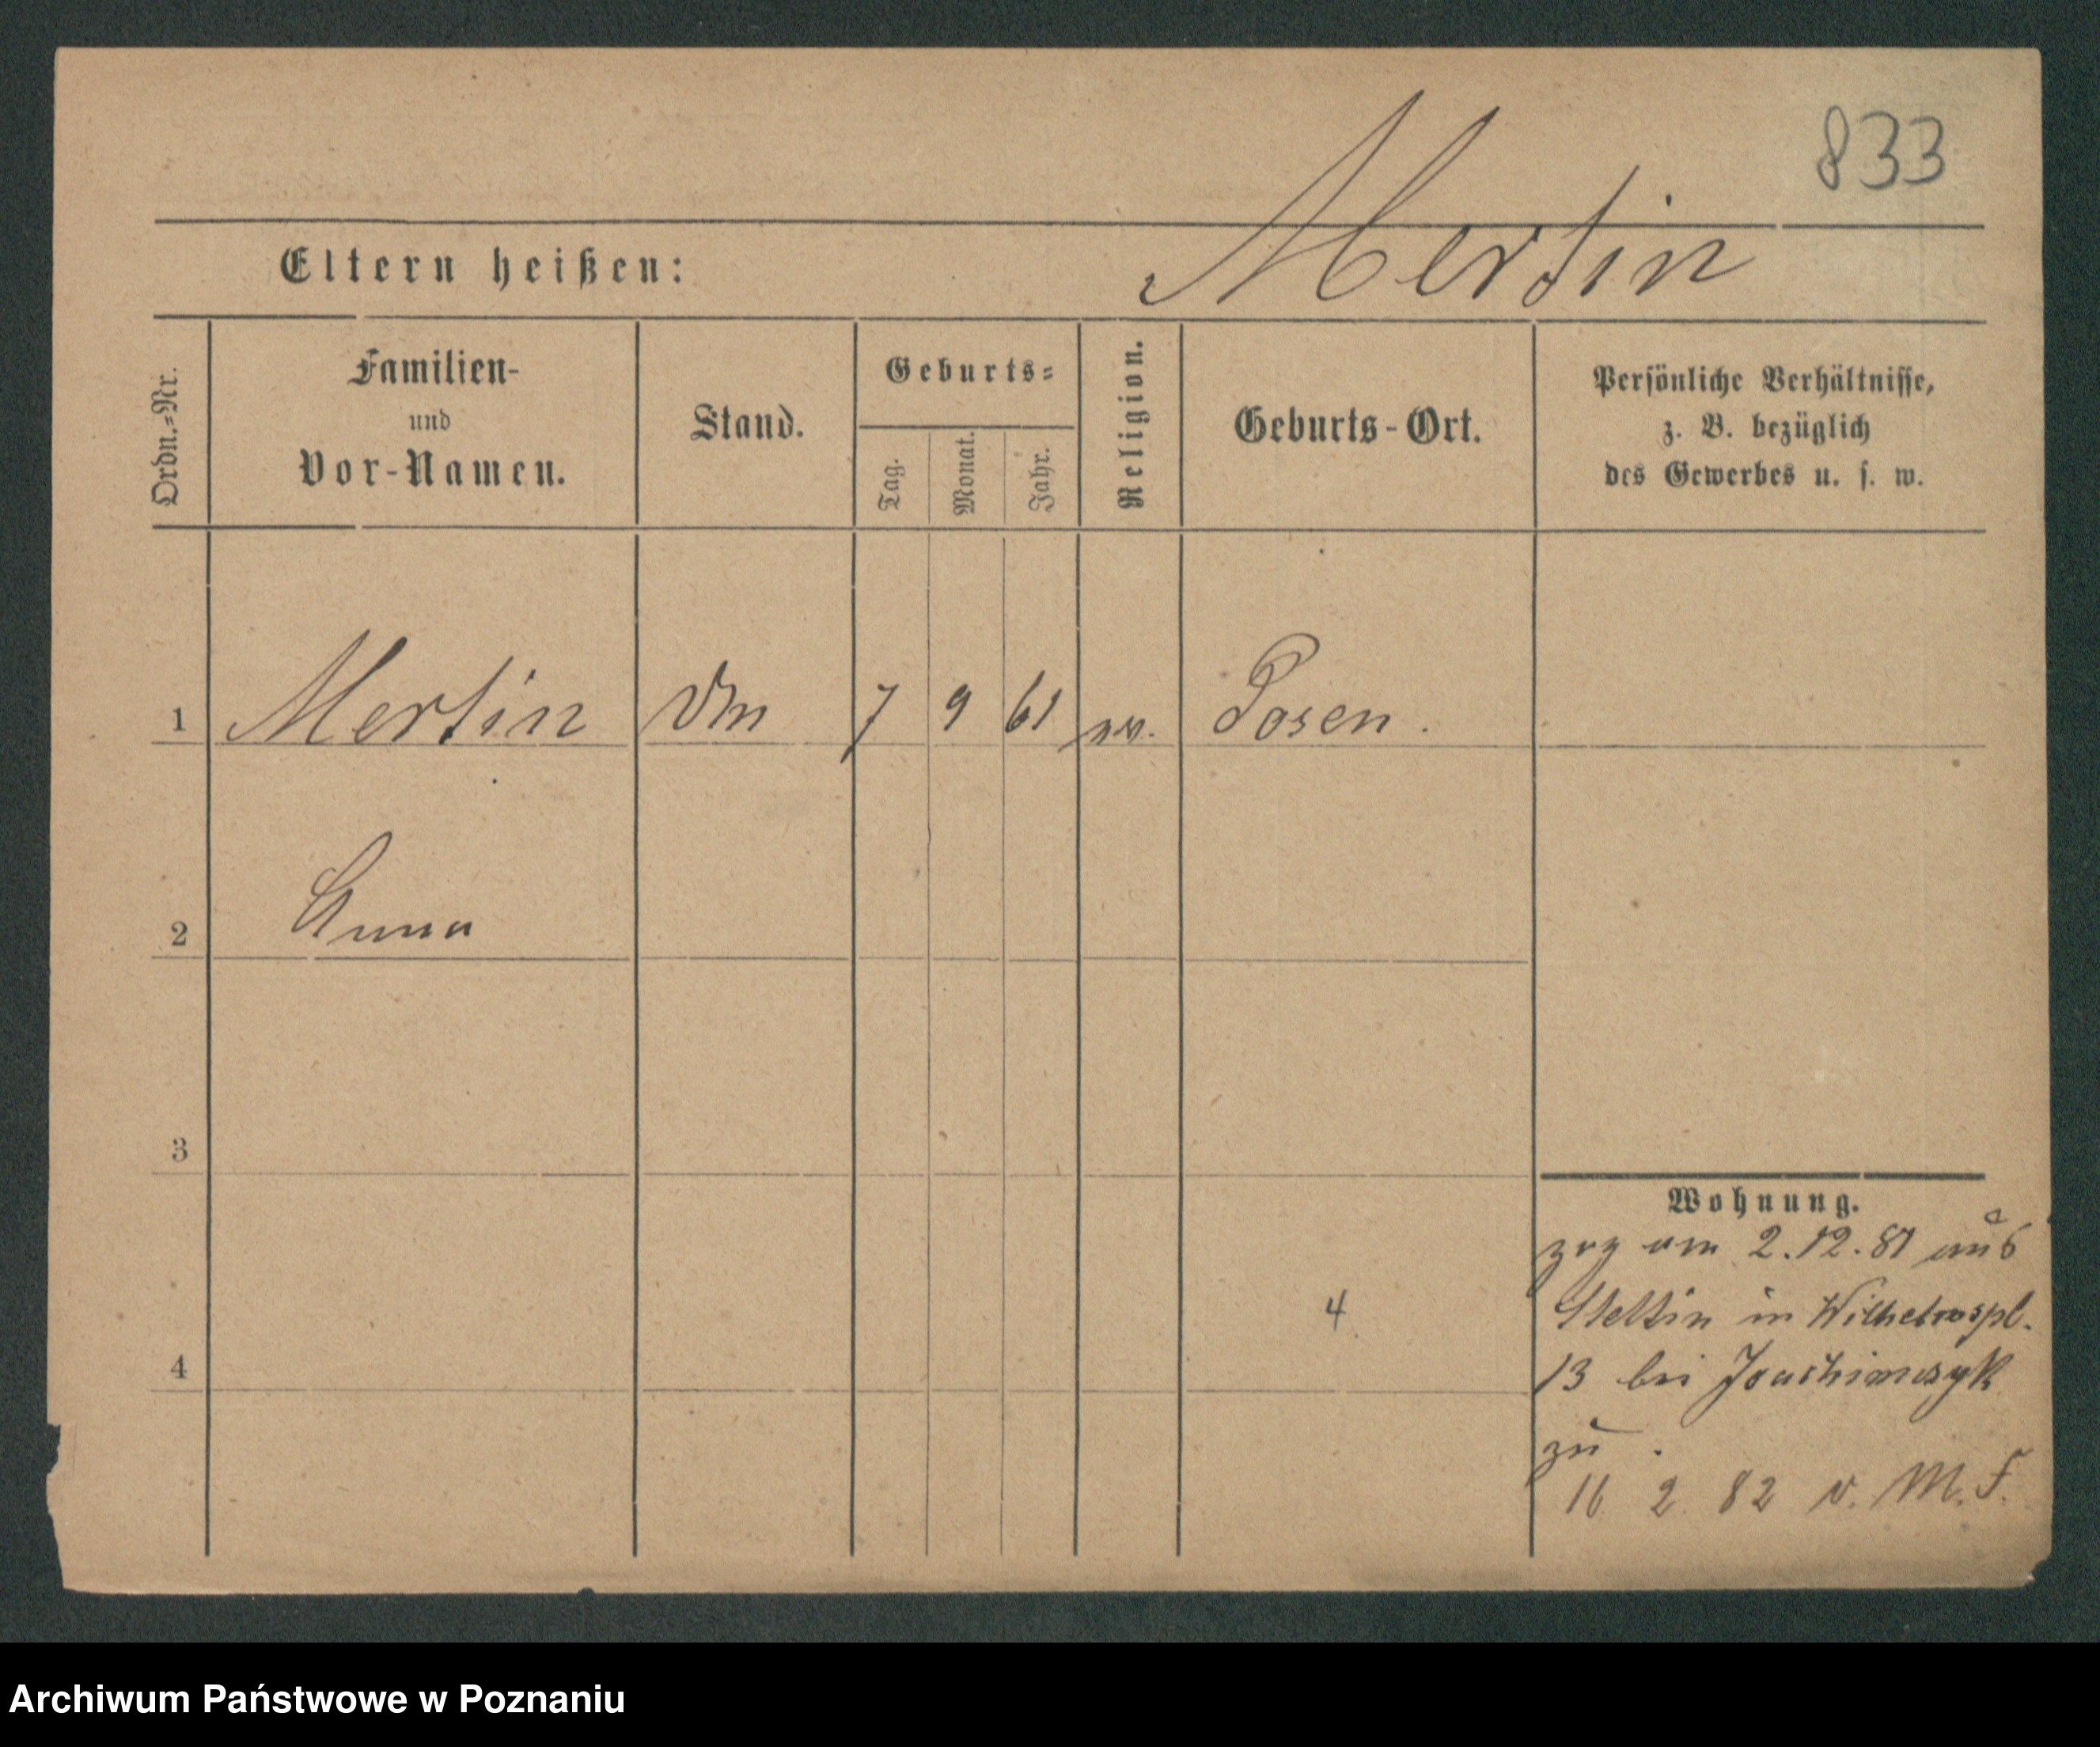 833
Eltern heißen: Mertin
Ordn.=Nr.
Familien-
und
Vor-Namen.
Stand.
Geburts=
Tag.
Monat.
Jahr.
Religion.
Geburts-Ort.
Persönliche Verhältnisse,
z. B. bezüglich
des Gewerbes u. s. w.
1 Mertin 7 9 61 ev. Posen.
2 Anna
3
Wohnung.
zog am 2.12.81 aus
Stettin in Wilhelmspl.
4
13 bei Joachimczyk
4
zu.
16 2. 82 v. M. F.
Archiwum Państwowe w Poznaniu